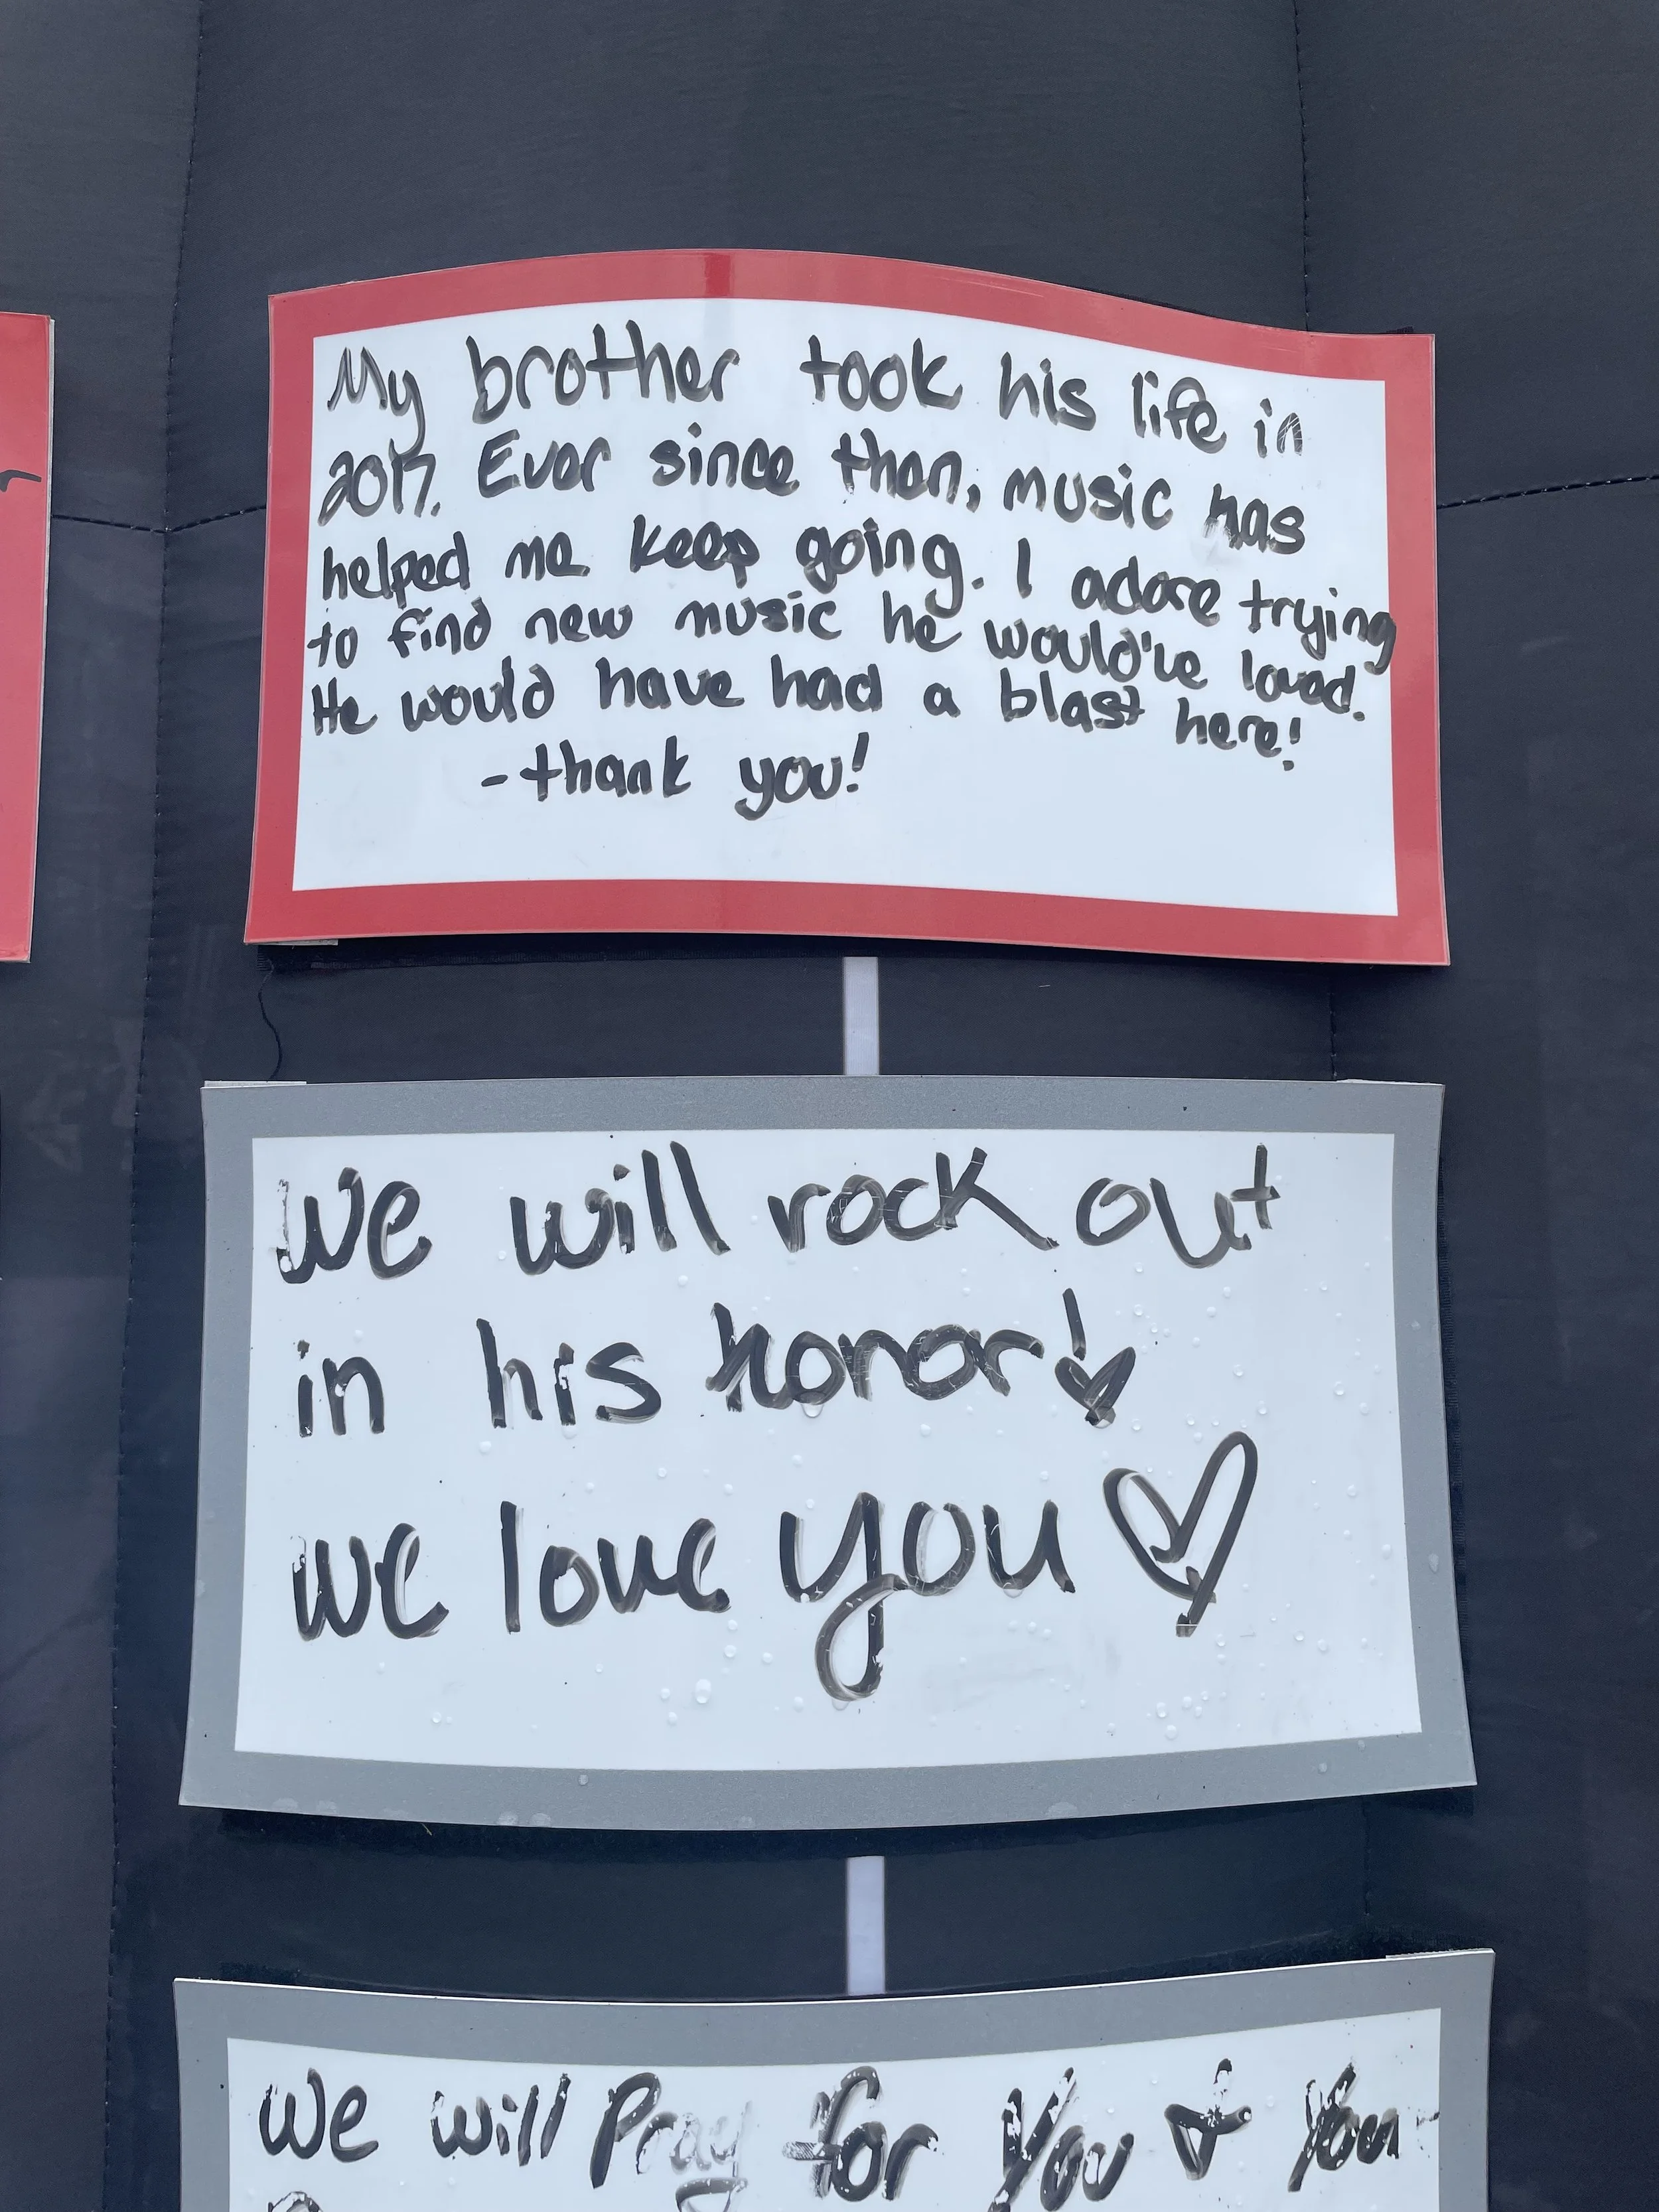 My brother took his life in
2017. Ever since then, music has
helped me keep going. I adore trying
to find new music he would've loved.
He would have had a blast here!
-thank you!
We will rock out
in his honor!
We love you ♡
We will Pray for You & Your